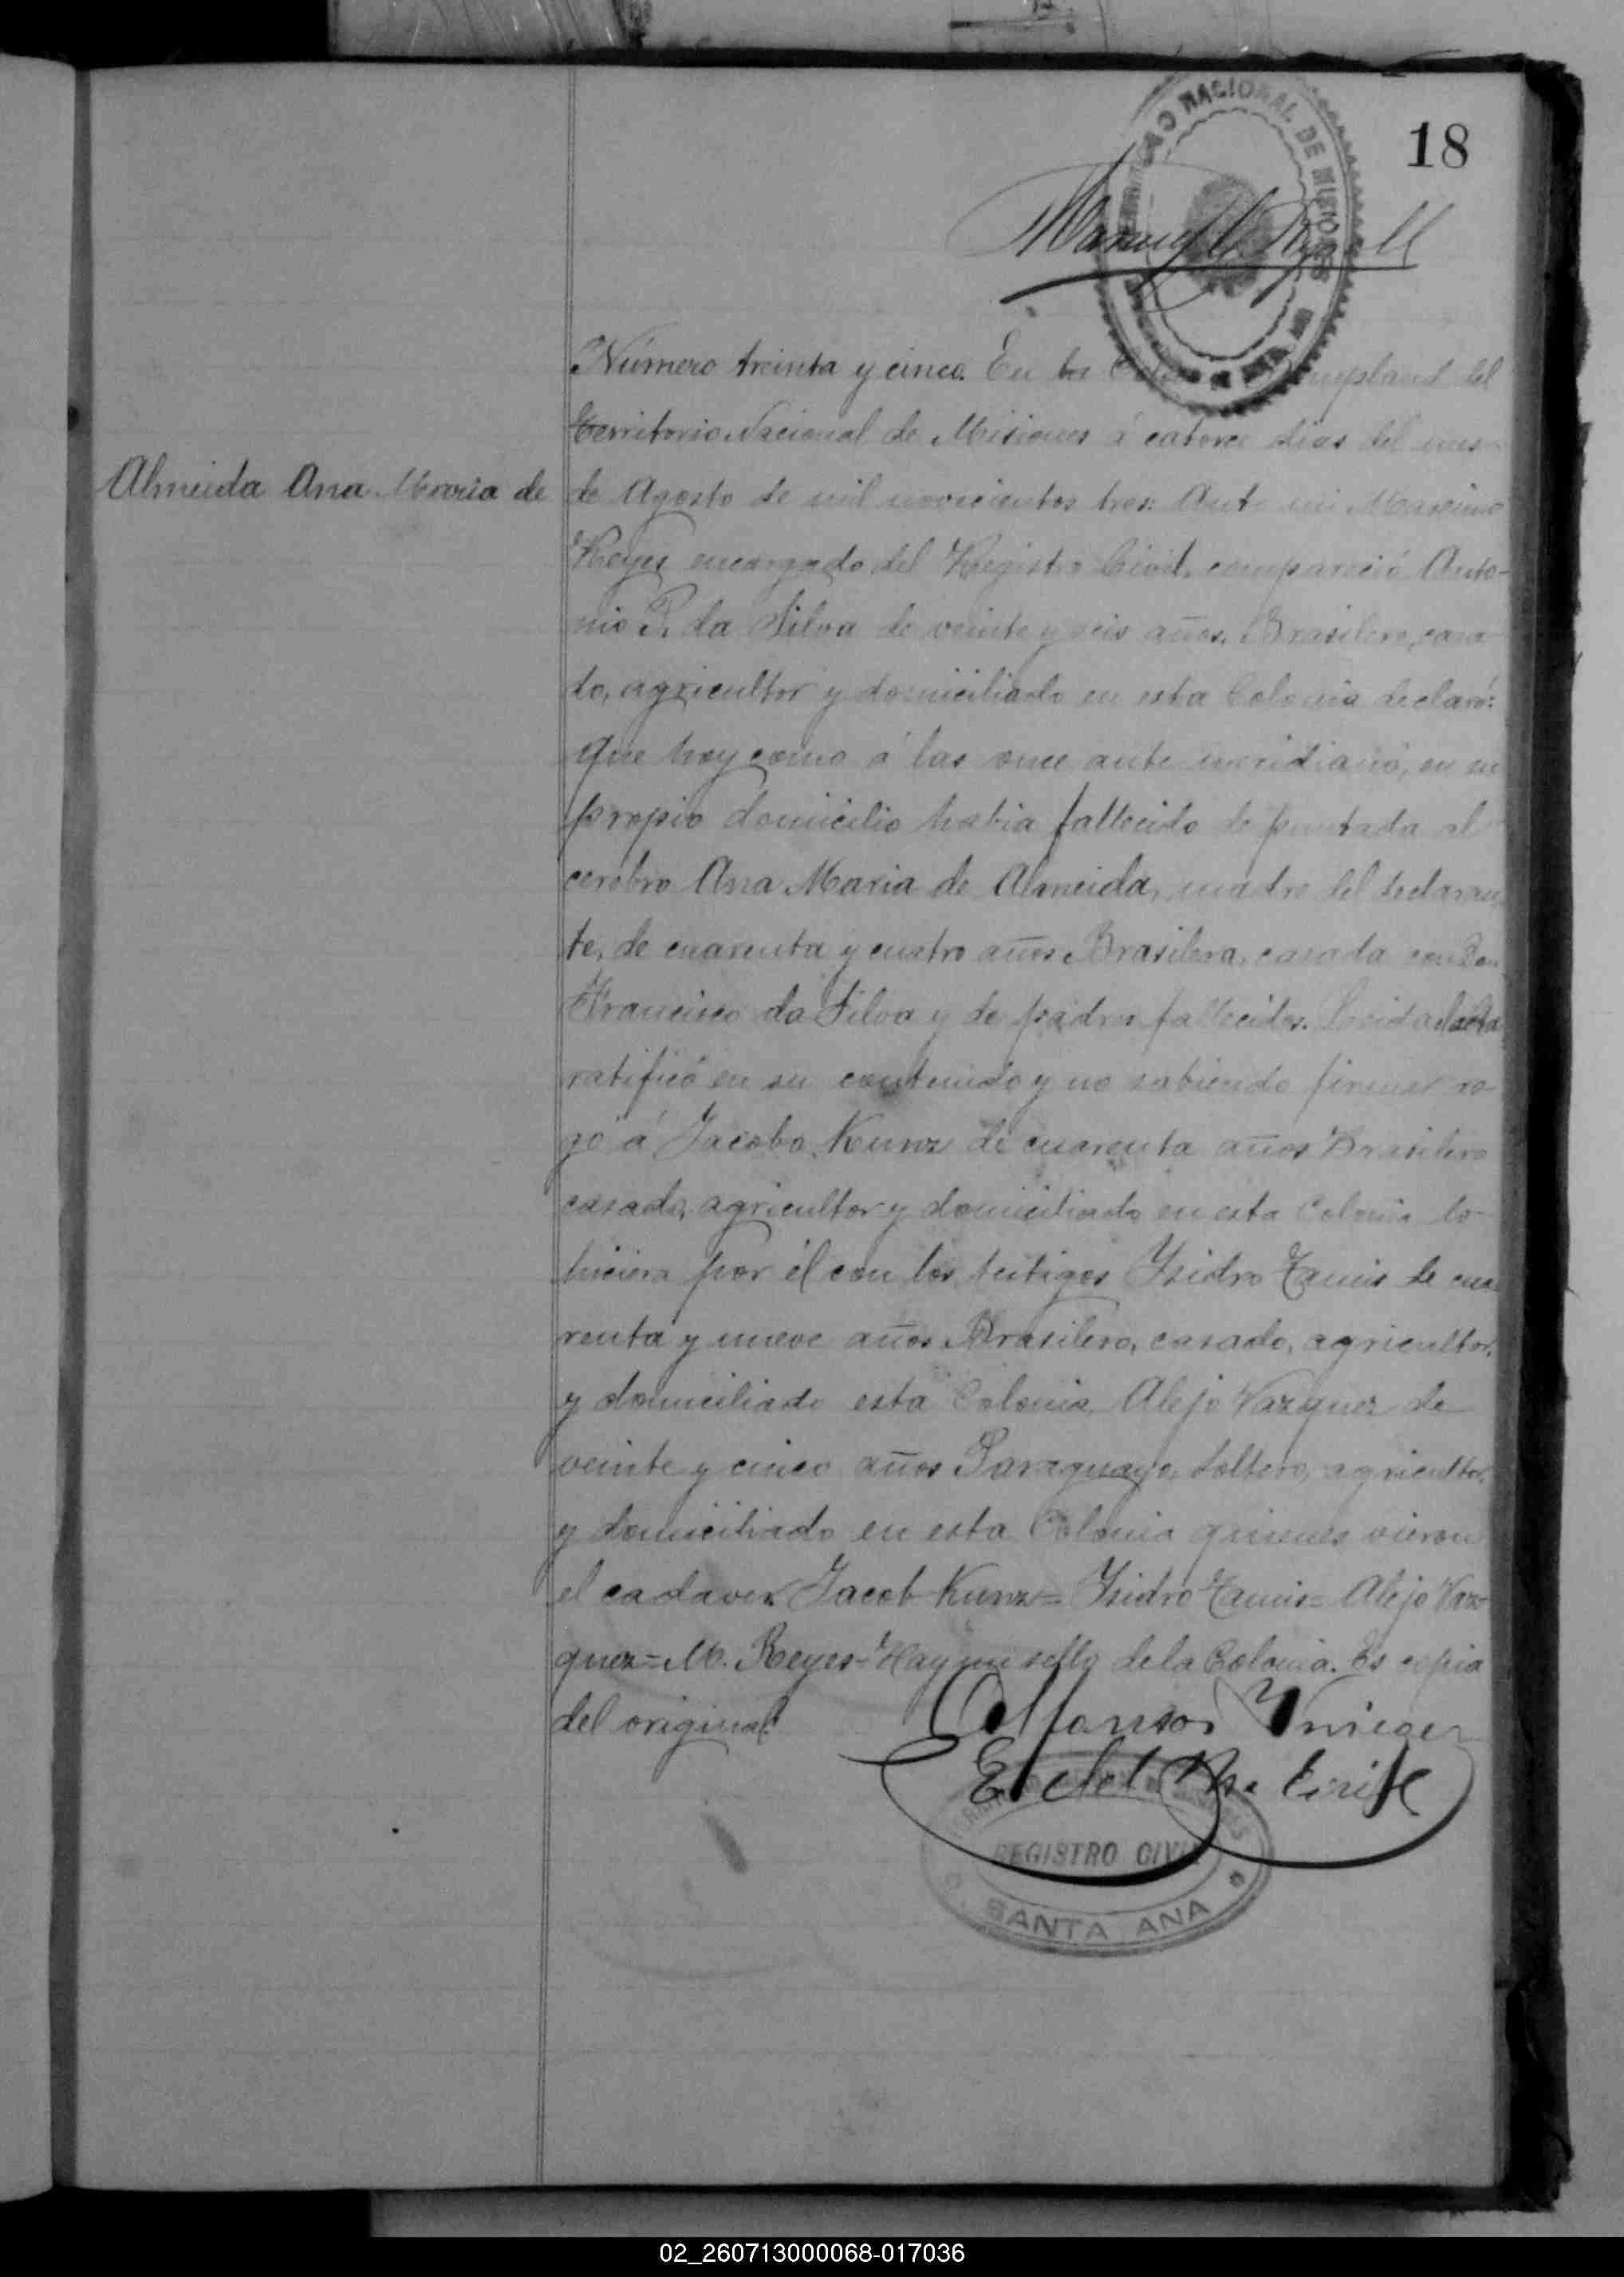 18
NACIONAL DE MISIONES
Número treinta y cinco. En la del
Territorio Nacional de Misiones á catorce dias del mes
Almeida Ana Maria de
de Agosto de mil novecientos tres: Ante mi Maximo
Reyes encargado del Registro Civil, compareció Anto-
nio P. da Silva de veinte y seis años, Brasilero, casa-
do, agricultor y domiciliado en esta Colonia declaró:
que hoy como á las once ante meridiano, en su
propio domicilio habia fallecido de puntada al
cerebro Ana Maria de Almeida, madre del declaran-
te, de cuarenta y cuatro años Brasilera, casada con Don
Francisco da Silva y de padres fallecidos. Leida el acta
ratificó en su contenido y no sabiendo firmar ro-
gó á Jacobo Kunz de cuarenta años Brasilero
casado, agricultor y domiciliado en esta Colonia lo
hiciera por él con los testigos Ysidro de cua-
renta y nueve años Brasilero, casado, agricultor,
y domiciliado esta Colonia, Alejo Vazquez de
veinte y cinco años Paraguayo, soltero, agricultor,
y domiciliado en esta Colonia quienes vieron
el cadaver. Jacob Kunz= Ysidro = Alejo Vaz-
quez= M. Reyes= Hay un sello de la Colonia. Es copia
del original.
REGISTRO CIVIL
SANTA ANA
02_260713000068-017036